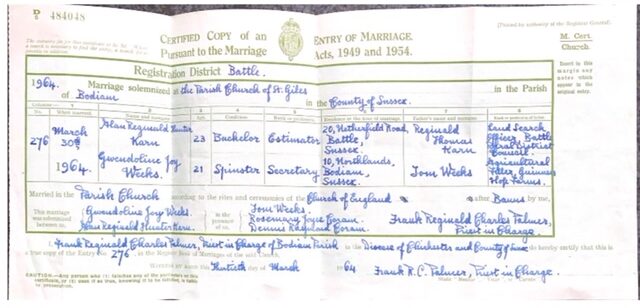 D 484048
CERTIFIED COPY of an ENTRY OF MARRIAGE.
Pursuant to the Marriage Acts, 1949 and 1954.
(Printed by authority of the Registrar General)
M. Cert.
Church.
Registration District Battle.
Insert in this margin any notes which appear in the original entry.
1964. Marriage solemnized at the Parish Church of St. Giles in the Parish
of Bodiam in the County of Sussex.
No. When married Name and surname Age Condition Rank or profession Residence at the time of marriage Father's name and surname Rank or profession of father
276 March 30th 1964. Alan Reginald Hunter Karn 23 Bachelor Estimator 20, Netherfield Road, Battle, Sussex Reginald Thomas Karn Land Search Officer, Battle Rural District Council
Gwendoline Joy Weeks. 21 Spinster Secretary 10, Northlands, Bodiam, Sussex. Tom Weeks. Agricultural Guinness Hop Farms.
Married in the Parish Church according to the rites and ceremonies of the Church of England after Banns by me,
This marriage was solemnized between us, Gwendoline Joy Weeks. Alan Reginald Hunter Karn.
in the presence of us, Tom Weeks. Rosemary Joyce Dennis Raymond
Frank Reginald Charles Palmer, Priest in Charge.
I, Frank Reginald Charles Palmer, Priest in Charge of Bodiam Parish in the Diocese of Chichester and County of Sussex do hereby certify that this is
a true copy of the Entry No. 276 in the Register Book of Marriages of the said Church.
WITNESS MY HAND this thirtieth day of March 1964 Frank R.C. Palmer, Priest in Charge.
CAUTION.—Any person who (1) falsifies any of the particulars on this certificate, or (2) uses it as true, knowing it to be falsified, is liable to prosecution.